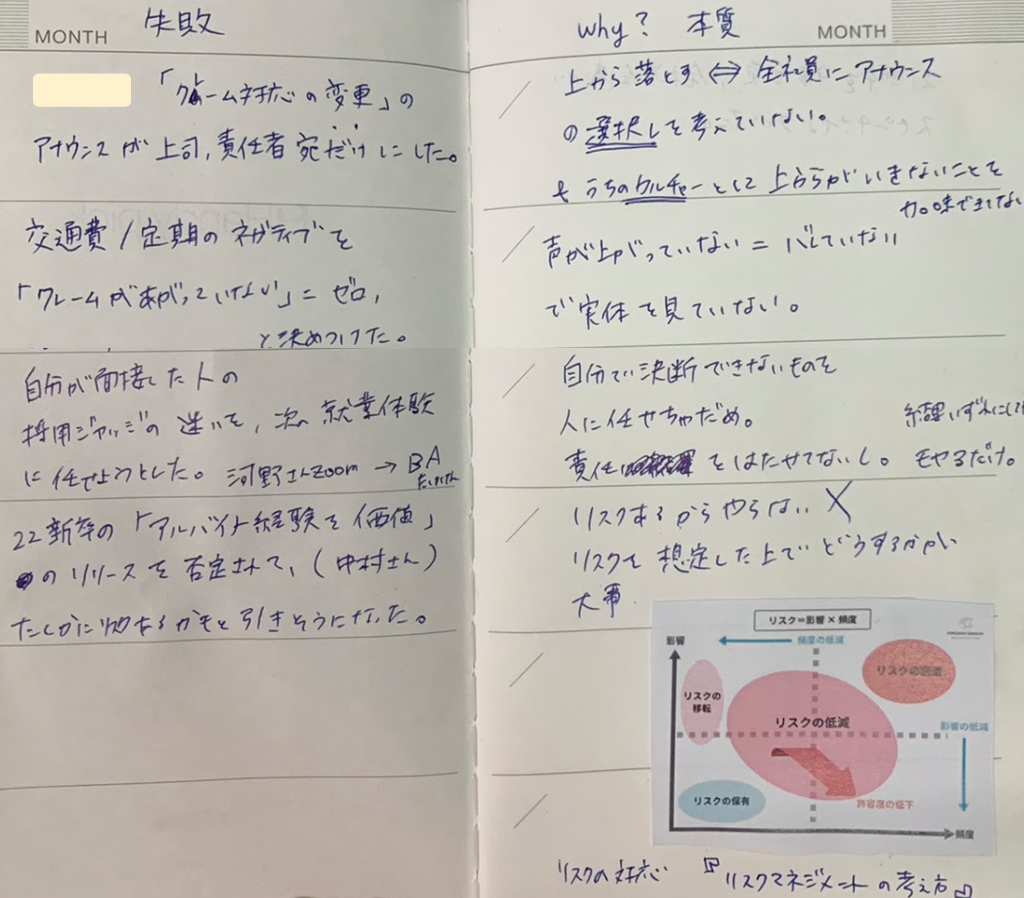 MONTH 失敗
「クレーム対応の変更」の
アナウンスが上司,責任者宛だけにした。
交通費/定期のネガティブを
「クレームがあがっていない」=ゼロ,
と決めつけた。
自分が面接した人の
採用ジャッジの迷いを、次の就業体験
に任せようとした。河野さんzoom → BA
22新卒の「アルバイト経験を価値」
のリリースを否定されて、(中村さん)
たしかに
かもと引きそうになった。
Why? 本質 MONTH
上から落とす ⇔ 全社員にアナウンス
の選択しを考えていない。
+ うちのカルチャーとして上からがいきないことを
加味できてない
声が上がっていない = バレていない
で実体を見ていない。
自分で決断できないものを
人に任せちゃだめ。
結果いずれにして
責任をはたせてないし。モヤるだけ。
リスクあるからやらない ×
リスクを想定した上でどうするかが
大事
リスク=影響×頻度
影響
頻度の低減
リスクの回避
リスクの移転
リスクの低減
影響の低減
リスクの保有
許容度の低下
頻度
リスクの対応 『リスクマネジメントの考え方』